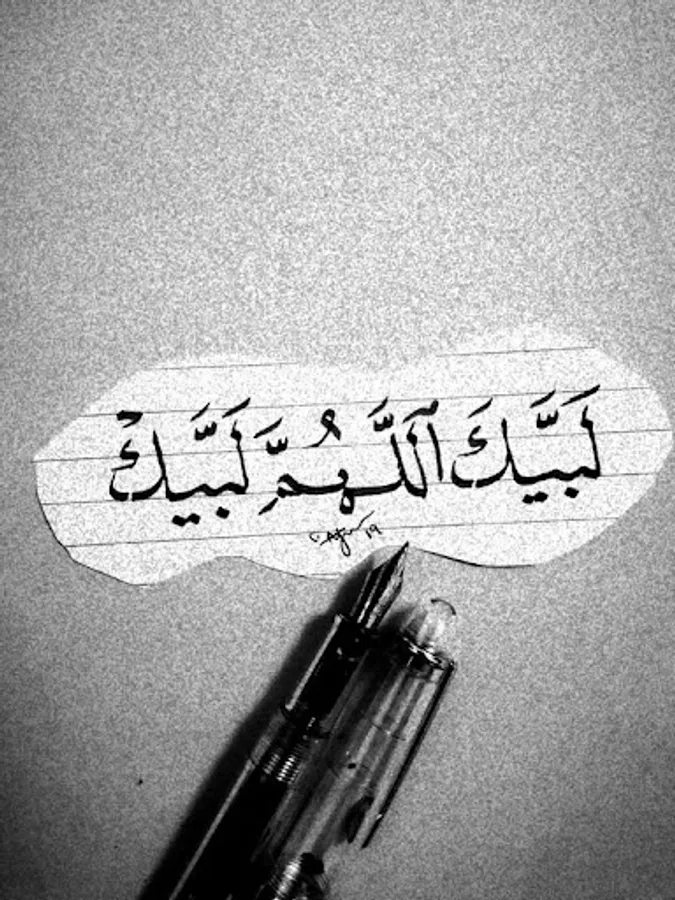 لَبَّيْكَ ٱللَّهُمَّ لَبَّيْكَ